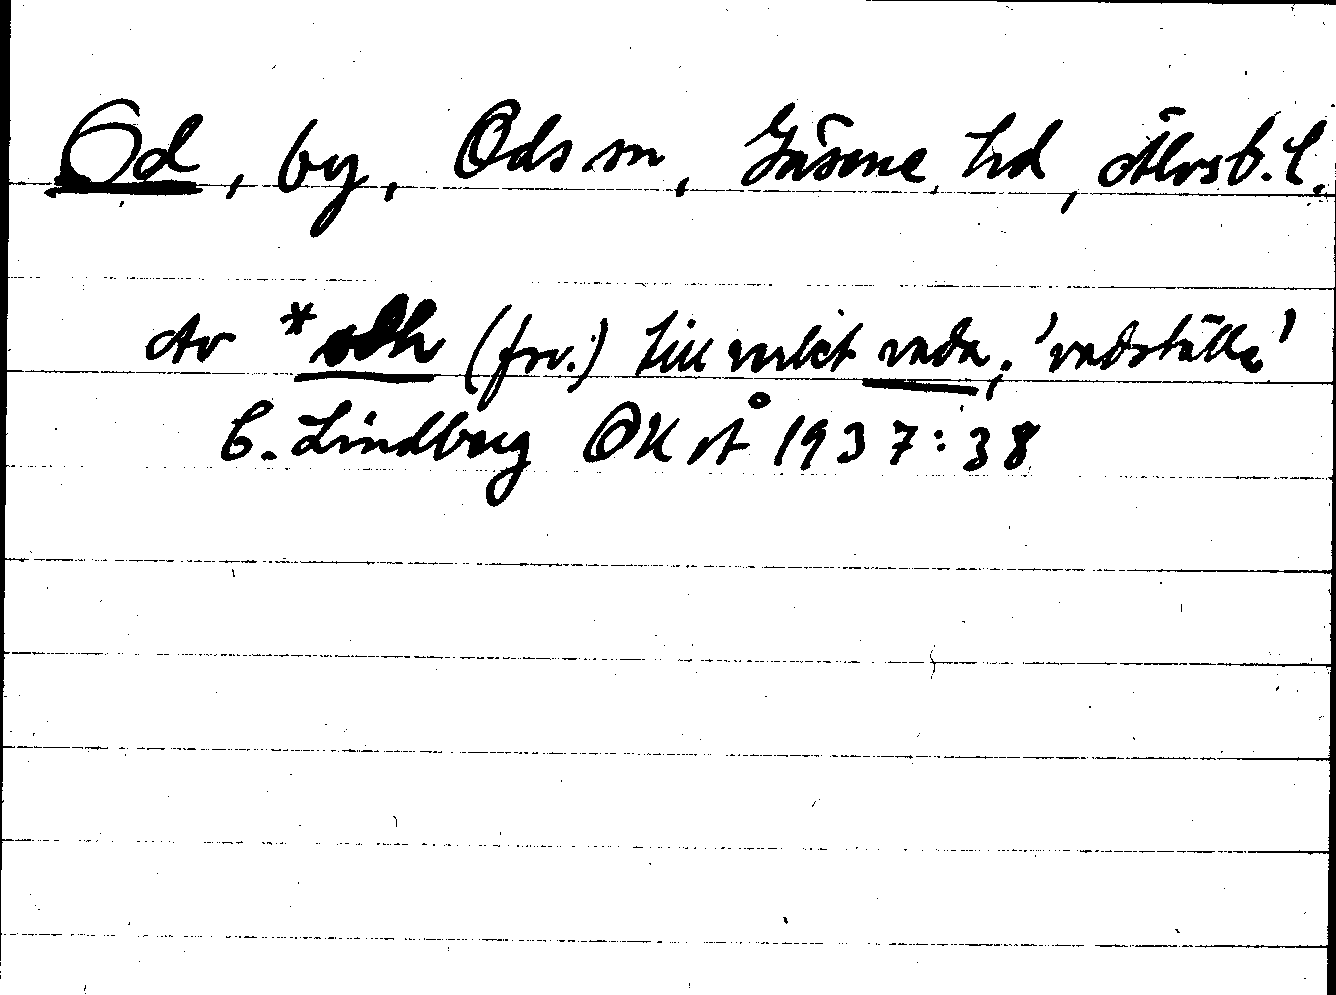 Od, by, Ods sn, Gäsene hd, Älvsb. l.
Av *odh (fsv.) till verbet vada; 'vadställe'
C. Lindberg OK Å 1937:38